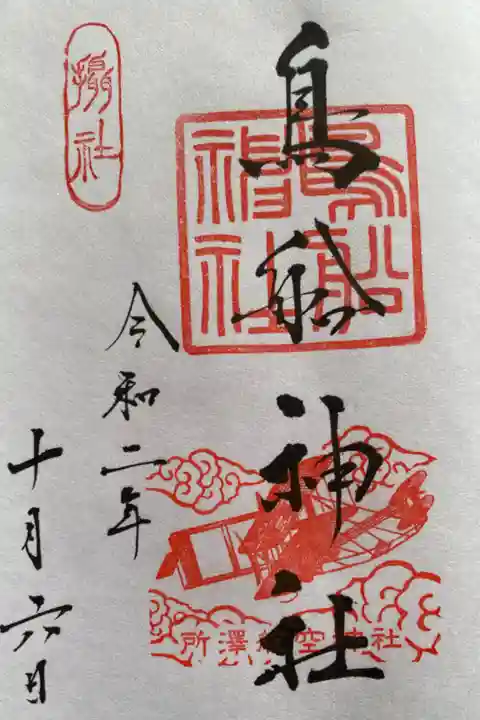 鳥船神社
鳥船神社
所澤航空神社
令和二年
十月六日
摂社